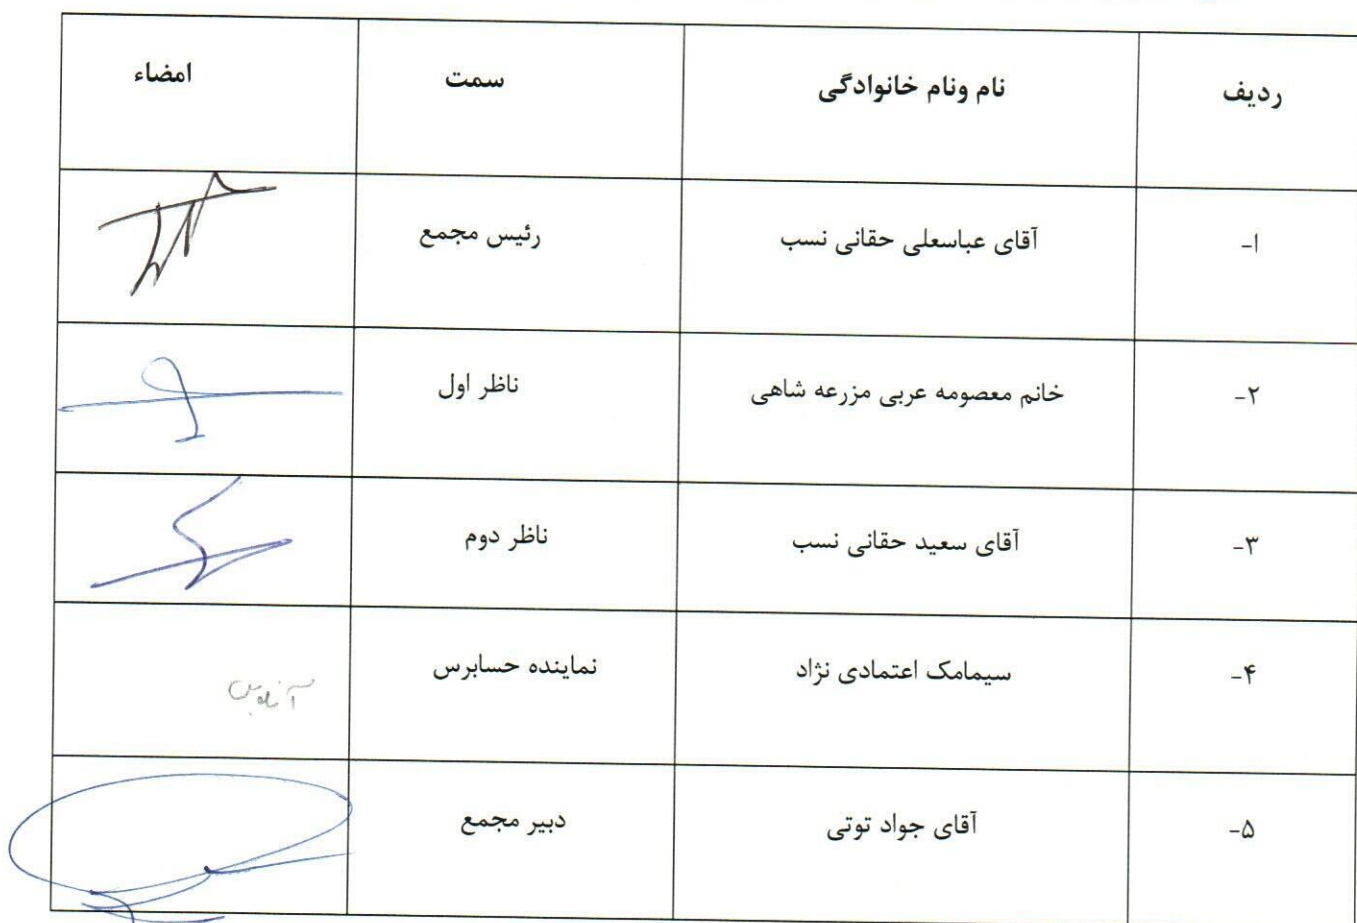 ردیف نام ونام خانوادگی سمت امضاء
۱- آقای عباسعلی حقانی نسب رئیس مجمع
۲- خانم معصومه عربی مزرعه شاهی ناظر اول
۳- آقای سعید حقانی نسب ناظر دوم
۴- سیمامک اعتمادی نژاد نماینده حسابرس
۵- آقای جواد توتی دبیر مجمع